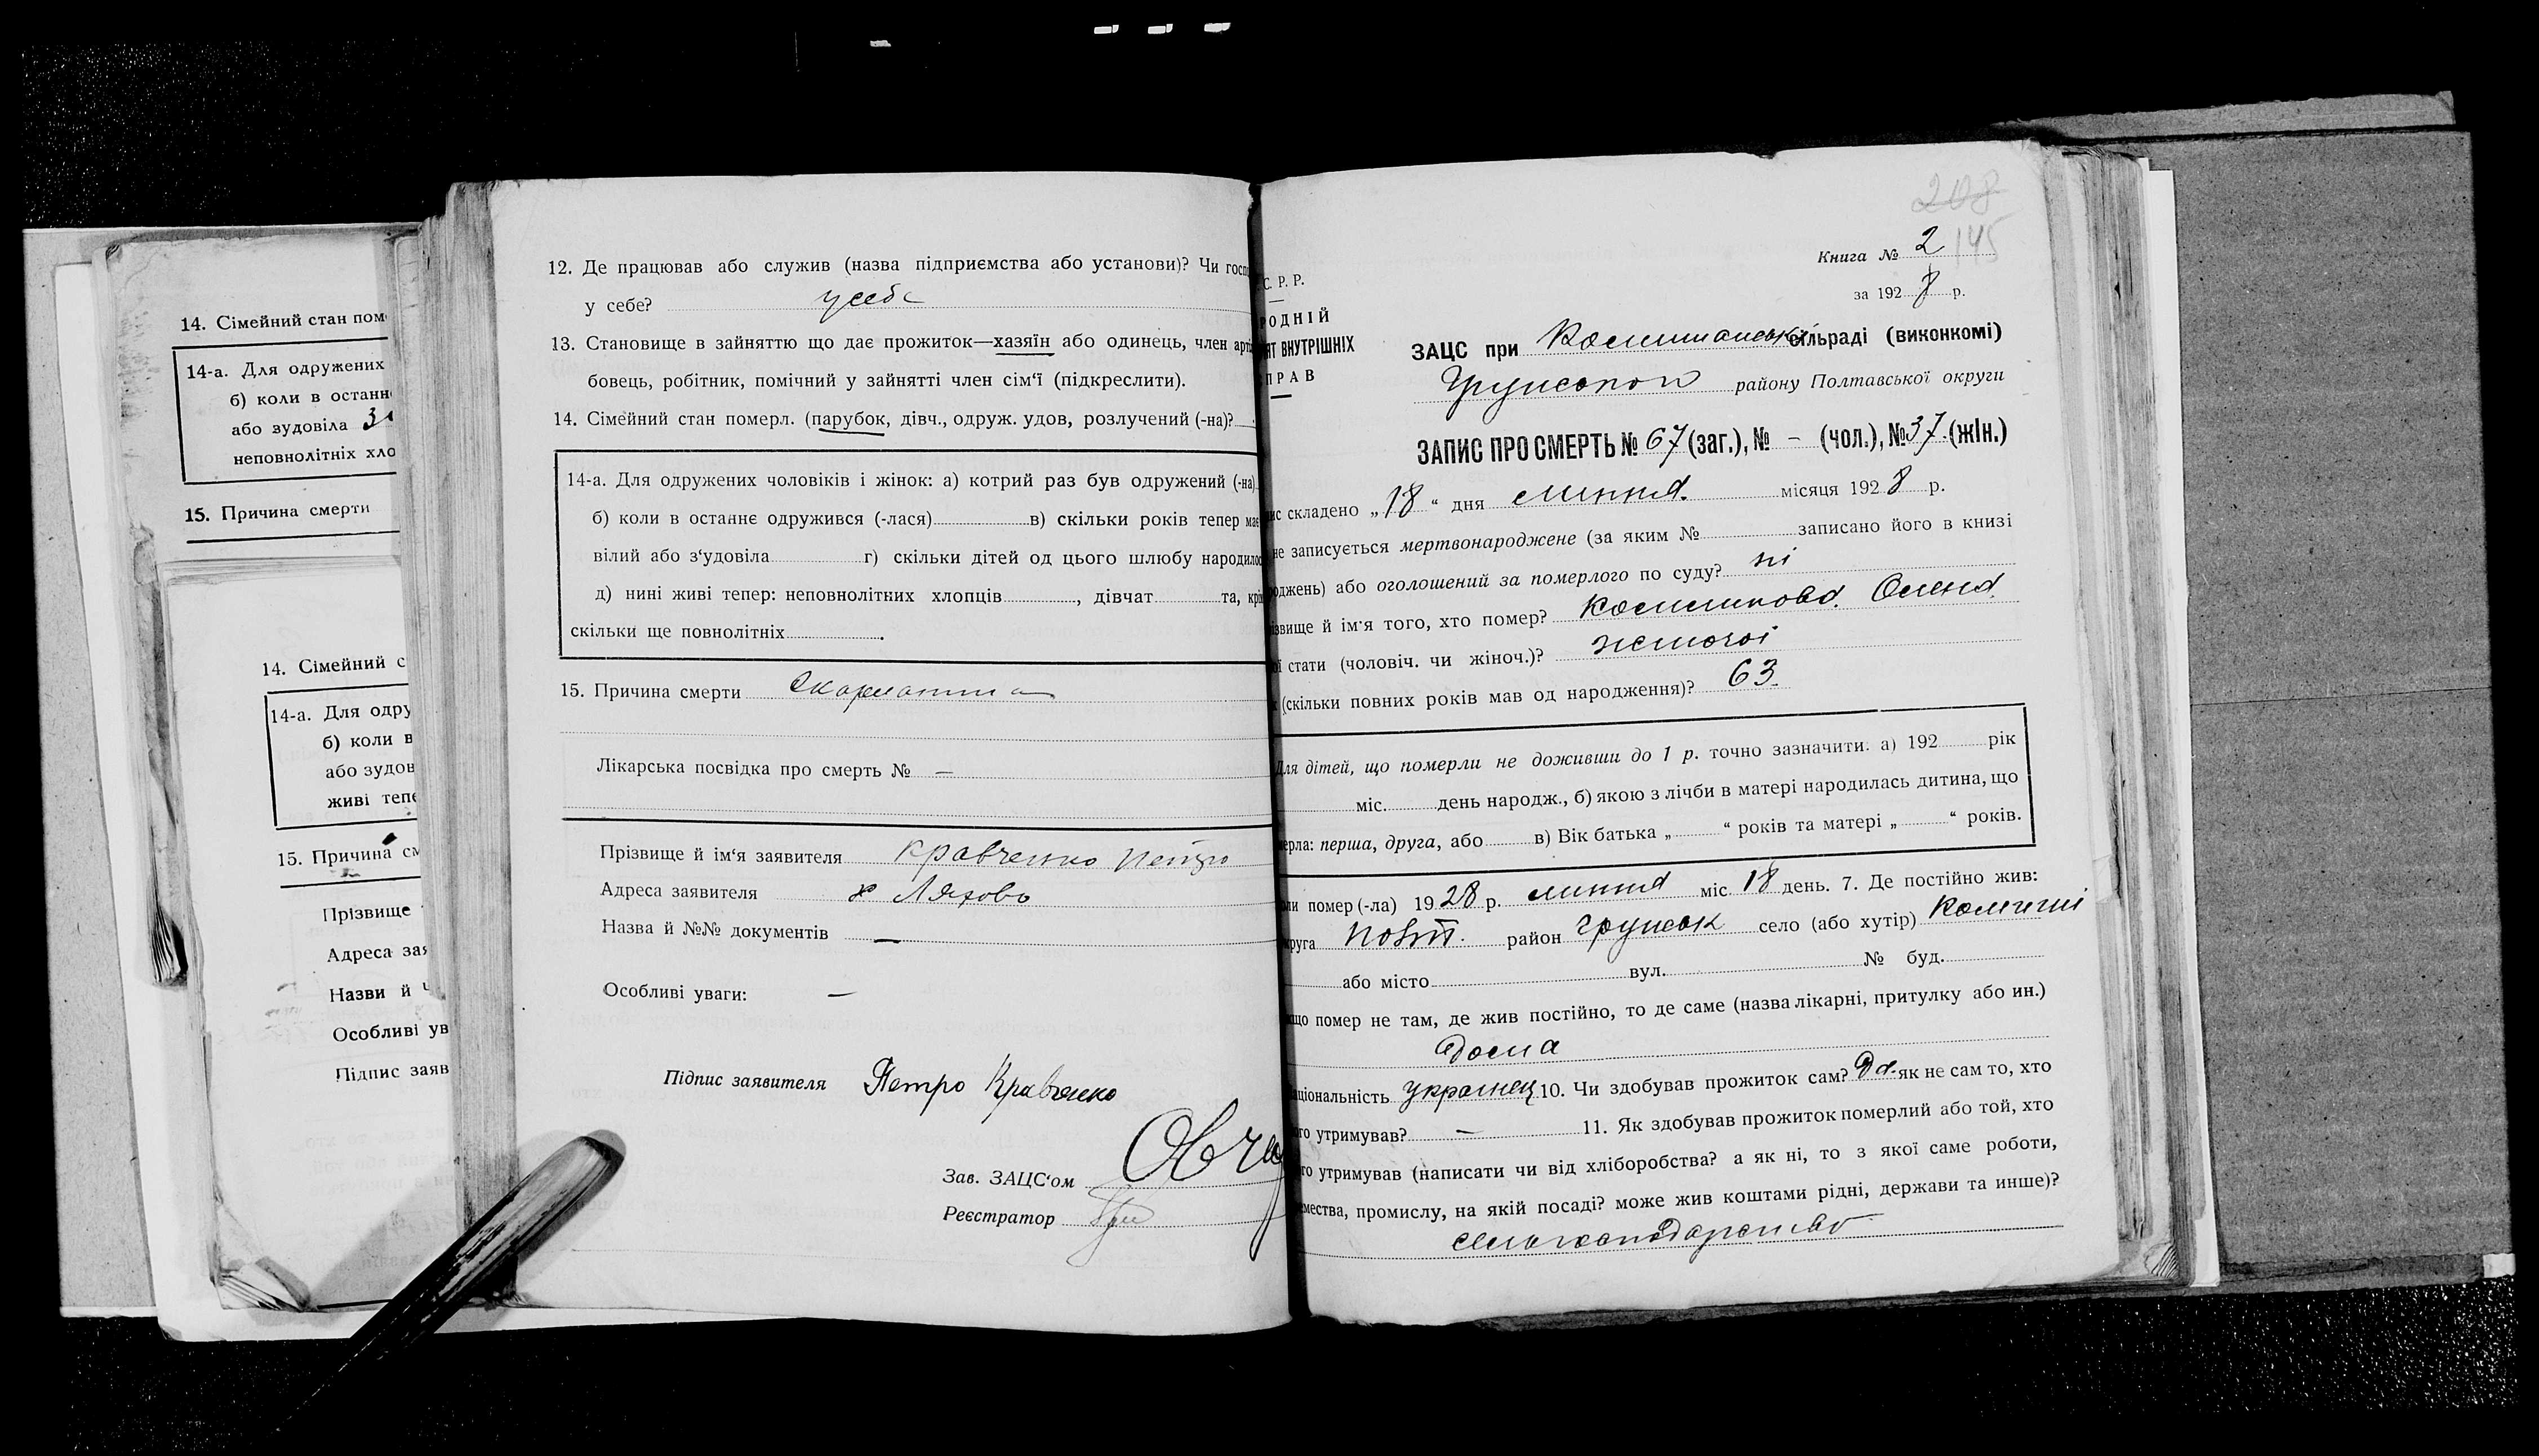 14. Сімейний стан пом
14-а. Для одружених
б) коли в останн
або зудовіла
неповнолітніх хло
15. Причина смерти
14. Сімейний с
14-а. Для одру
б) коли в
або зудов
живі тепе
15. Причина см
Прізвище
Адреса зая
Назви й
Особливі ув
Підпис заяв
12. Де працював або служив (назва підприємства або установи)? Чи госп
у себе? у себе
13. Становище в зайняттю що дає прожиток—хазяїн або одинець, член арті
бовець, робітник, помічний у зайнятті член сім‘ї (підкреслити).
14. Сімейний стан померл. (парубок, дівч., одруж. удов, розлучений (-на)?
14-а. Для одружених чоловіків і жінок: а) котрий раз був одружений (-на)
б) коли в останнє одружився (-лася) в) скільки років тепер має
вілий або з‘удовіла г) скільки дітей од цього шлюбу народилос
д) нині живі тепер: неповнолітних хлопців, дівчат та, крім
скільки ще повнолітніх.
15. Причина смерти Скарлатина
Лікарська посвідка про смерть № —
Прізвище й ім‘я заявителя Кравченко Петро
Адреса заявителя х Ляхова
Назва й №№ документів —
Особливі уваги: —
Підпис заявителя Петро Кравченко
Зав. ЗАЦС‘ом
Реєстратор
208
Книга № 2 145
за 1928 р.
С. Р. Р.
РОДНІЙ
ЯТ ВНУТРІШНІХ
ПРАВ
ЗАЦС при сільраді (виконкомі)
району Полтавської округи
ЗАПИС ПРО СМЕРТЬ № 67 (заг.), № – (чол.), № 37 (жін.)
ис складено „18“ дня липня місяця 1928 р.
не записується мертвонароджене (за яким № записано його в книзі
роджень) або оголошений за померлого по суду? ні
ізвище й ім'я того, хто помер?
ої стати (чоловіч. чи жіноч.)? жіночої
(скільки повних років мав од народження)? 63
Для дітей, що померли не доживши до 1 р. точно зазначити: а) 192 рік
міс. день народж., б) якою з лічби в матері народилась дитина, що
мерла: перша, друга, або в) Вік батька „ “ років та матері „ “ років.
оли помер (-ла) 1928 р. липня міс. 18 день. 7. Де постійно жив:
круга Полт. район село (або хутір)
або місто вул. № буд.
що помер не там, де жив постійно, то де саме (назва лікарні, притулку або ин.)
Дома
аціональність українец 10. Чи здобував прожиток сам? Да як не сам то, хто
го утримував? — 11. Як здобував прожиток померлий або той, хто
го утримував (написати чи від хліборобства? а як ні, то з якої саме роботи,
мества, промислу, на якій посаді? може жив коштами рідні, держави та инше)?